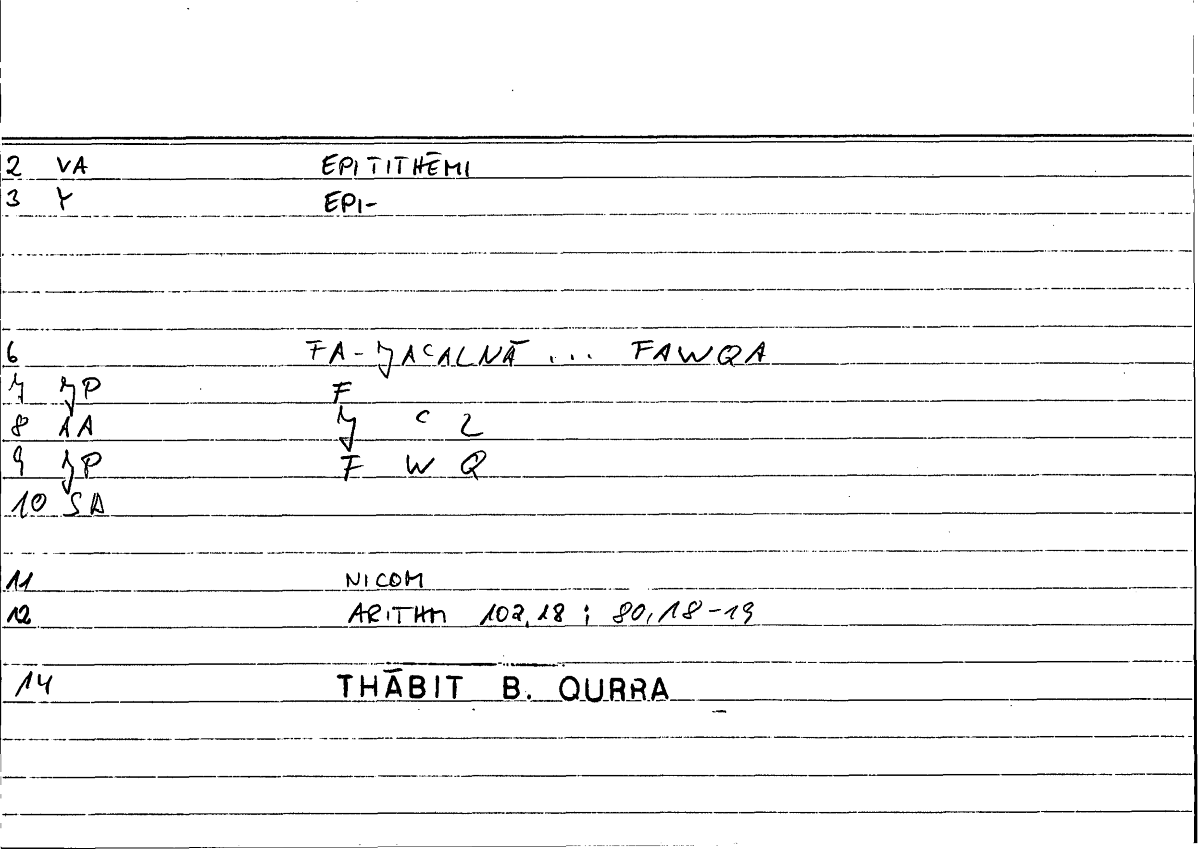 2 VA EPITITHĒMI
3 Y EPI-
6 FA-JACALNĀ ... FAWQA
7 JP F
8 AA J C L
9 JP F W Q
10 SA
11 NICOM
12 ARITHM 102,18 ; 80,18-19
14 THĀBIT B. QURRA